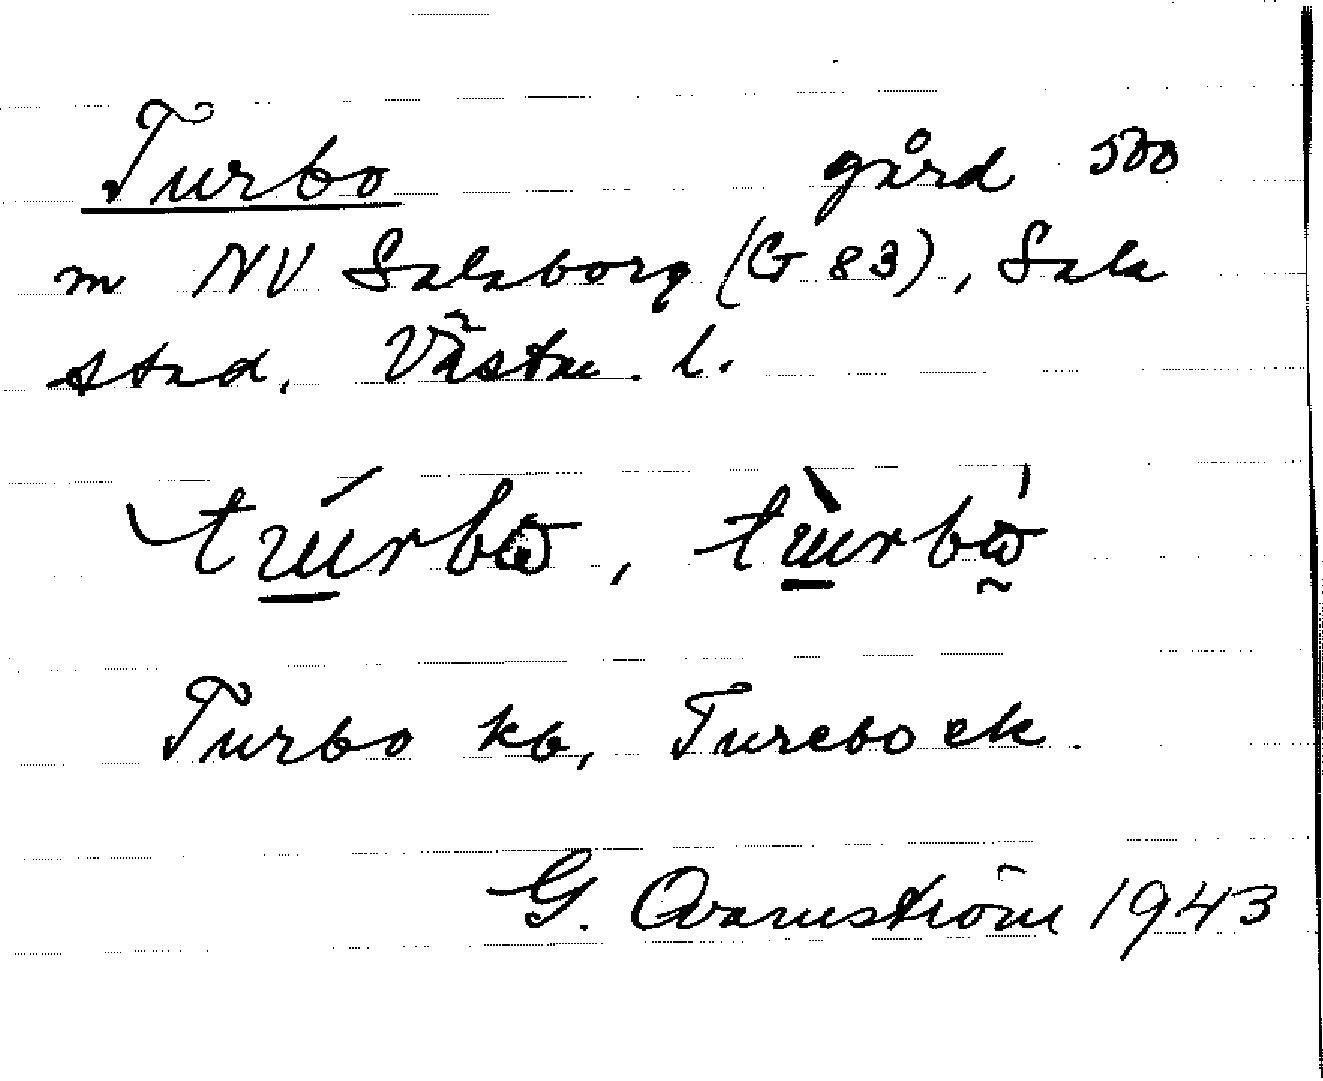 Turbo gård 500
m NV Salaborg (G 83), Sala
stad. Västm. l.
túrbω, tùrbὼ
Turbo kb, Turebo ek.
G. Qvarnström 1943